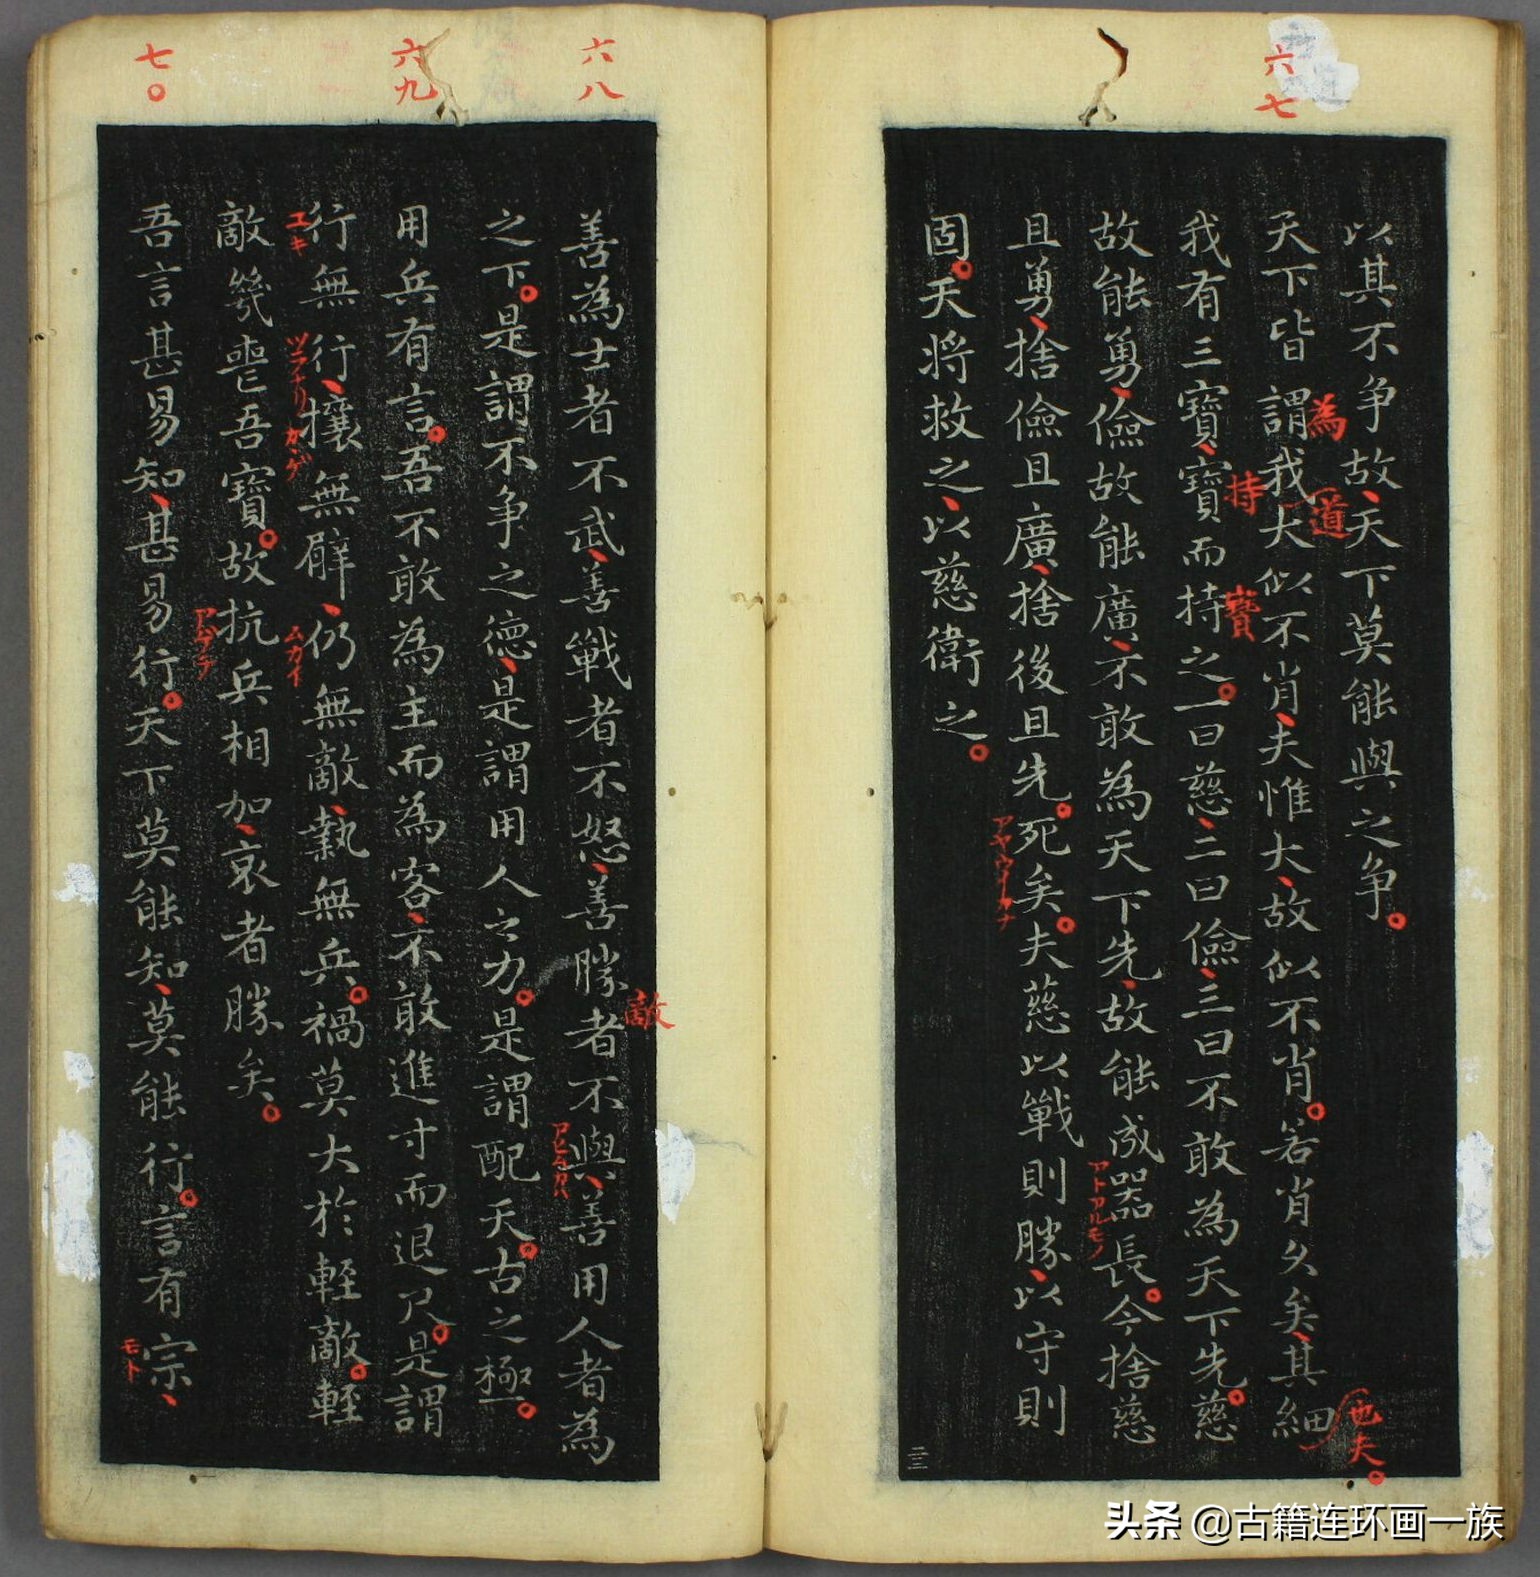 六七
以其不争故、天下莫能與之争。
天下皆謂我大似不肖、夫惟大、故似不肖。若肖久矣、其細
為
道
也夫。
我有三寶、寶而持之。一曰慈、二曰儉、三曰不敢為天下先。慈
持
寶
故能勇、儉故能廣、不敢為天下先、故能成器長。今捨慈
アトアルモノ
且勇、捨儉且廣、捨後且先。死矣。夫慈以戰則勝、以守則
固。天将救之、以慈衛之。
二三
六八
善為士者不武、善戰者不怒、善勝者不與、善用人者為
敵
之下。是謂不争之德、是謂用人之力。是謂配天。古之極。
六九
用兵有言。吾不敢為主而為客、不敢進寸而退尺。是謂
行無行、攘無臂、仍無敵、執無兵。禍莫大於輕敵。輕
ユキ
ツラナリ
カヽゲ
ムカイ
敵幾喪吾寶。故抗兵相加、哀者勝矣。
七〇
吾言甚易知、甚易行。天下莫能知、莫能行。言有宗、
モト
头条 @古籍连环画一族